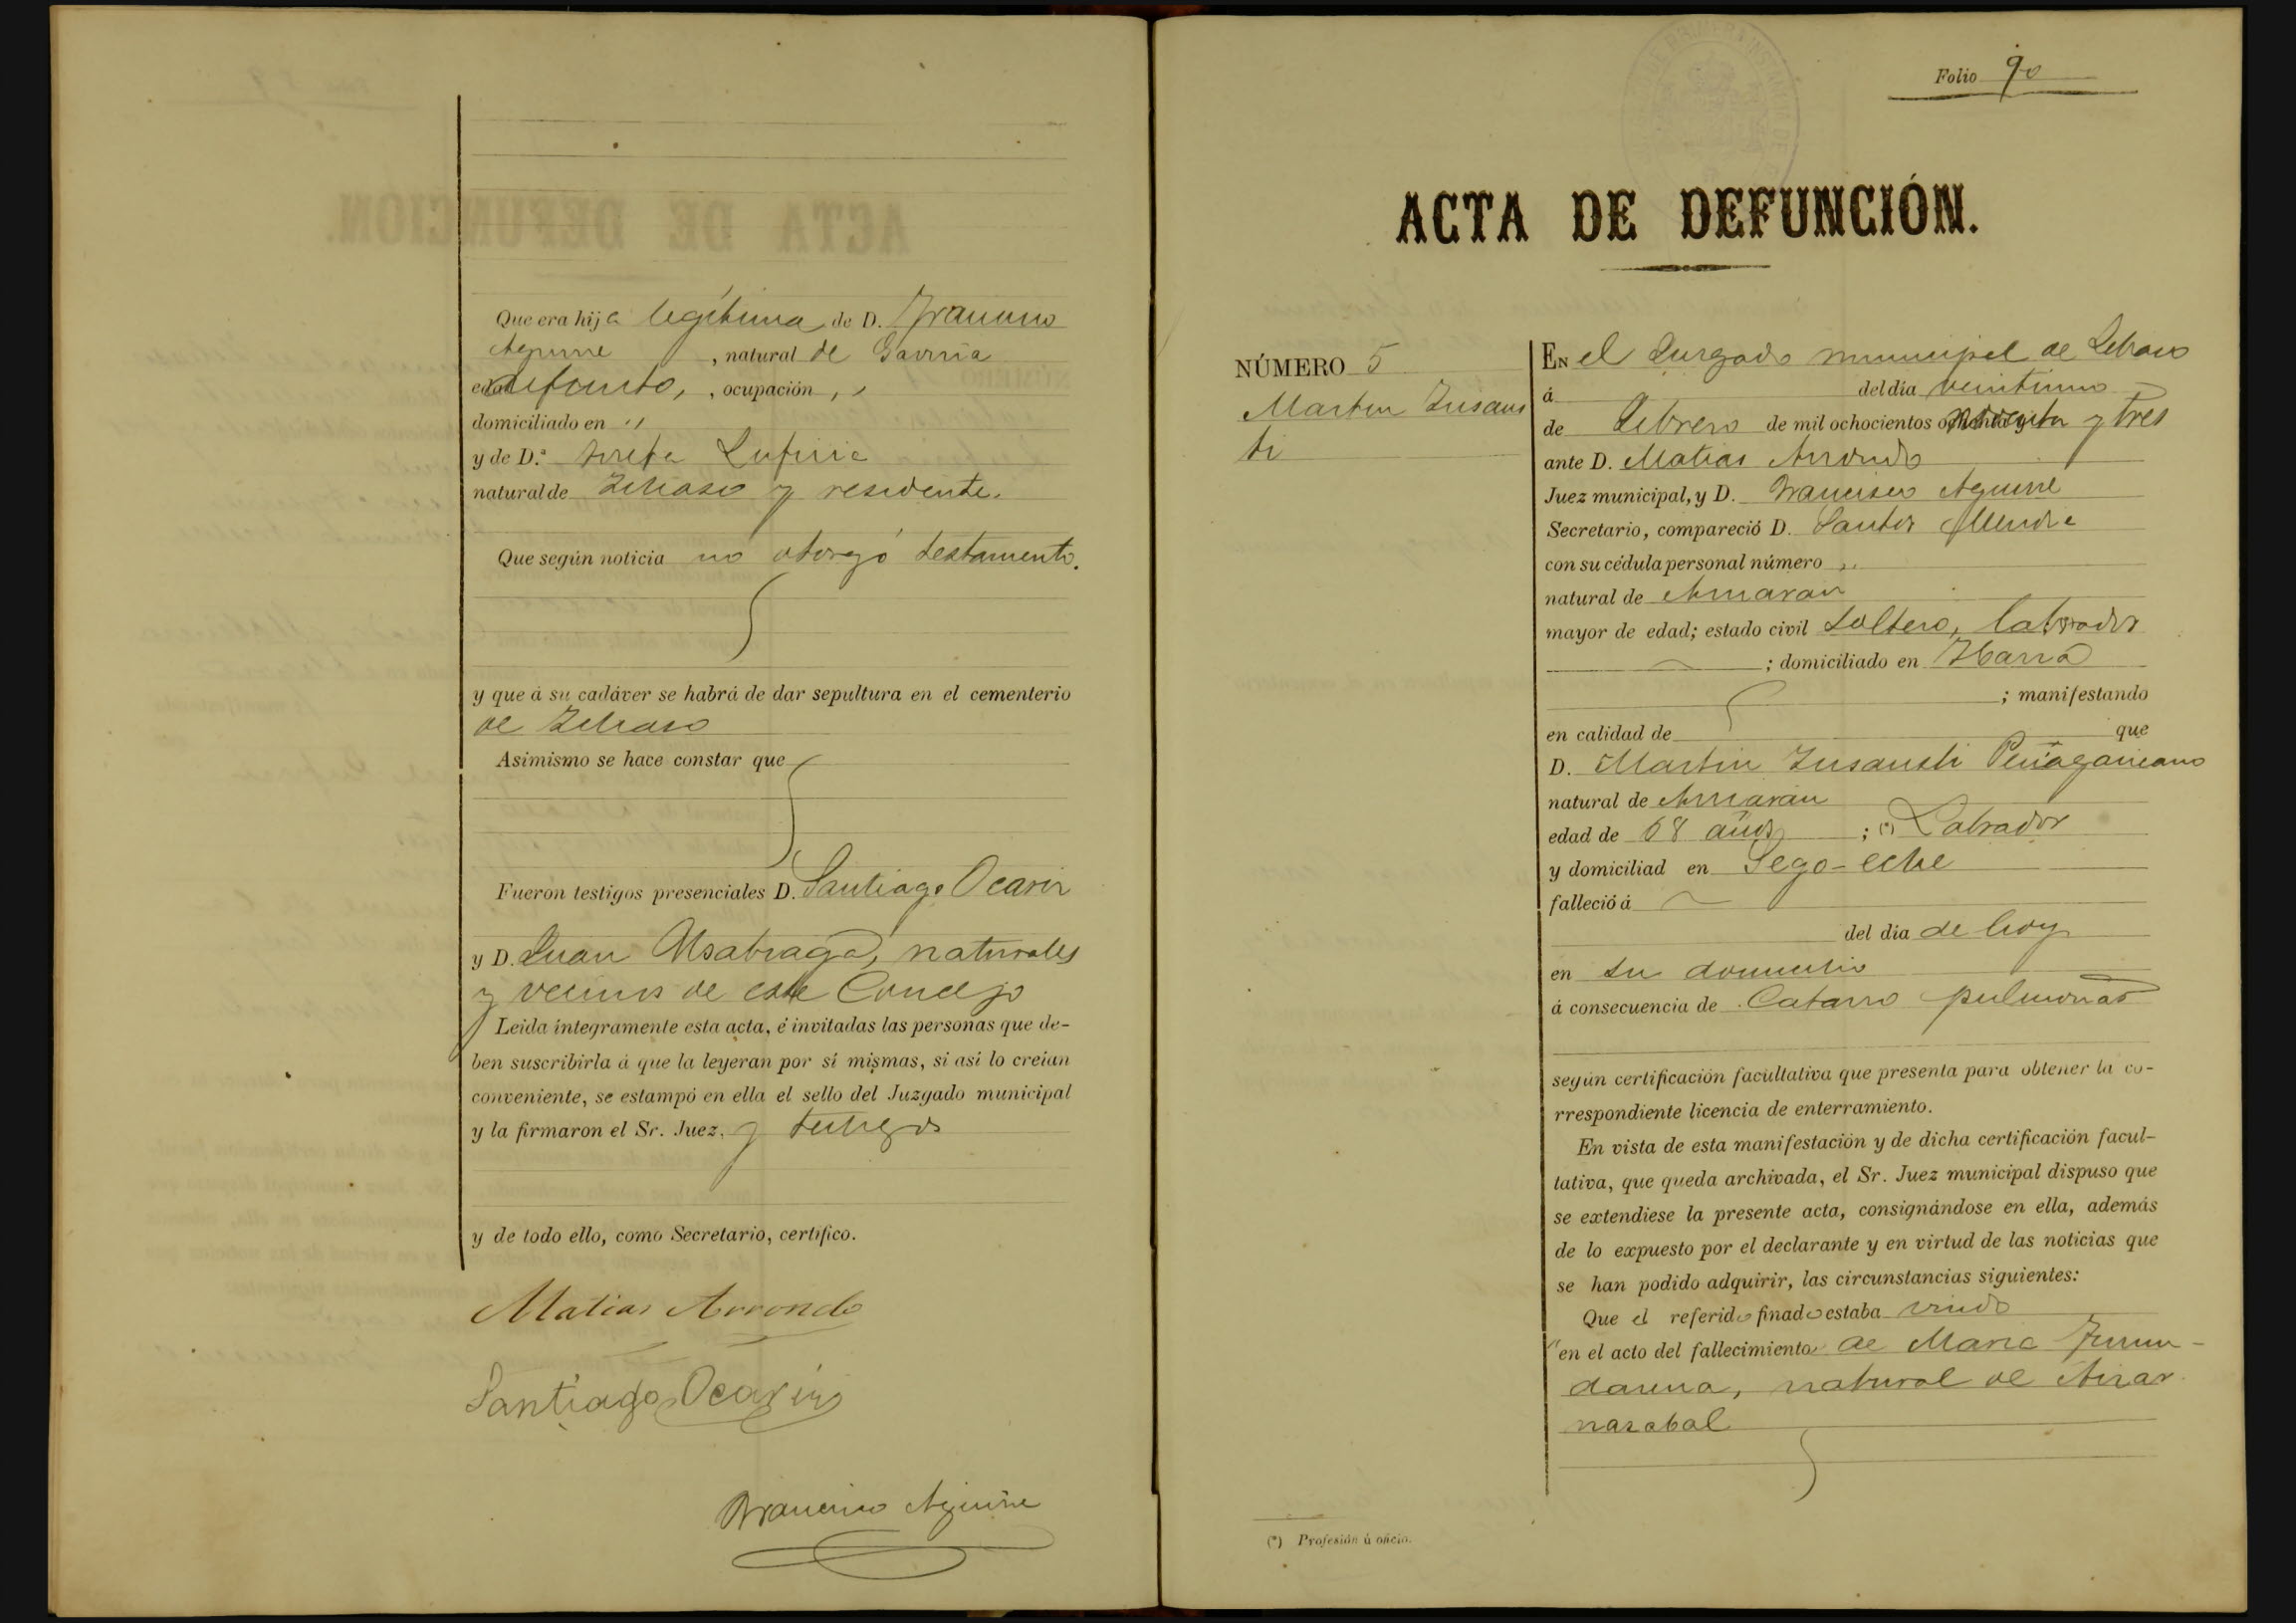 Que era hija legítima de D. Francisco
Aguirre, natural de Gaviria
edad difunto, ocupación ,,
domiciliado en ,,
y de D.ª Josefa
natural de y residente.
Que según noticia no otorgó testamento.
y que á su cadáver se habrá de dar sepultura en el cementerio
de
Asimismo se hace constar que
Fueron testigos presenciales D. Santiago Ocariz
y D. Juan naturales
y vecinos de este Concejo
Leida íntegramente esta acta, é invitadas las personas que de-
ben suscribirla á que la leyeran por sí mismas, si así lo creían
conveniente, se estampó en ella el sello del Juzgado municipal
y la firmaron el Sr. Juez, y testigos
y de todo ello, como Secretario, certifico.
Matias Arrondo
Santiago Ocariz
Francisco Aguirre
Folio 90
ACTA DE DEFUNCIÓN.
NÚMERO 5
Martin Insaus
ti
EN el Juzgado municipal de
á del día veintiuno
de Febrero de mil ochocientos noventa y tres
ante D. Matias Arrondo
Juez municipal, y D. Francisco Aguirre
Secretario, compareció D. Santos
con su cédula personal número ,,
natural de Arriaran
mayor de edad; estado civil Soltero, labrador
; domiciliado en Ibarra
; manifestando
en calidad de que
D. Martin Insausti Peñagaricano
natural de Arriaran
edad de 68 años; (*) Labrador
y domiciliad en Sego-eche
falleció á
del día de hoy
en su domicilio
á consecuencia de Catarro pulmonar
según certificación facultativa que presenta para obtener la co-
rrespondiente licencia de enterramiento.
En vista de esta manifestación y de dicha certificación facul-
tativa, que queda archivada, el Sr. Juez municipal dispuso que
se extendiese la presente acta, consignándose en ella, además
de lo expuesto por el declarante y en virtud de las noticias que
se han podido adquirir, las circunstancias siguientes:
Que el referido finado estaba viudo
en el acto del fallecimiento de Maria
natural de
(*) Profesión ú oficio.